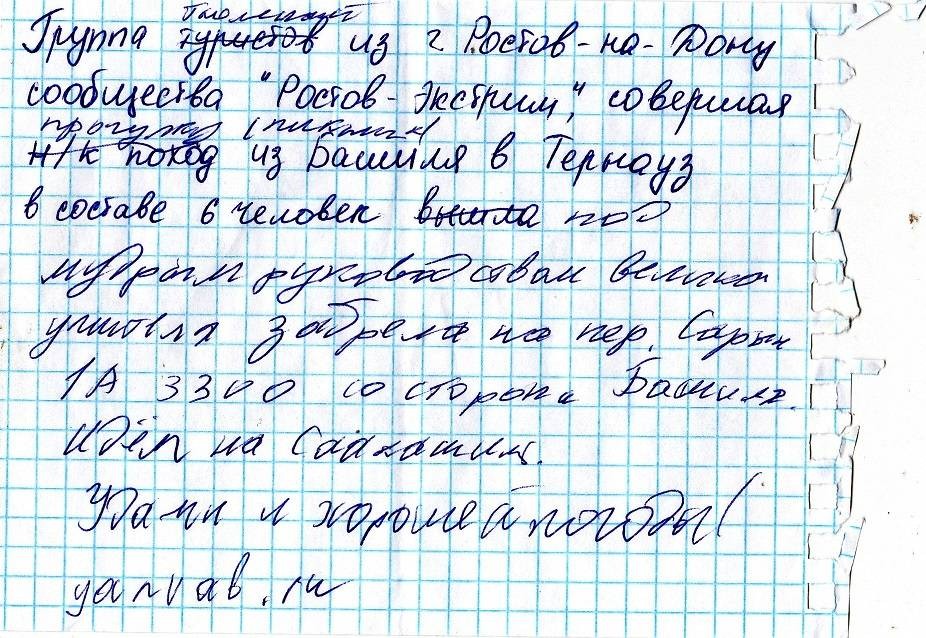 Группа туристов из г. Ростов-на-Дону
сообщества "Ростов-Экстрим", совершая
прогулку (пикник)
н/к поход из Башиля в Тернауз
в составе 6 человек вышла под
мудрым руководством велико
учителя забрела на пер. Сарын
1А 3300 со стороны Башиля.
Идём на
Удачи и хорошей погоды!